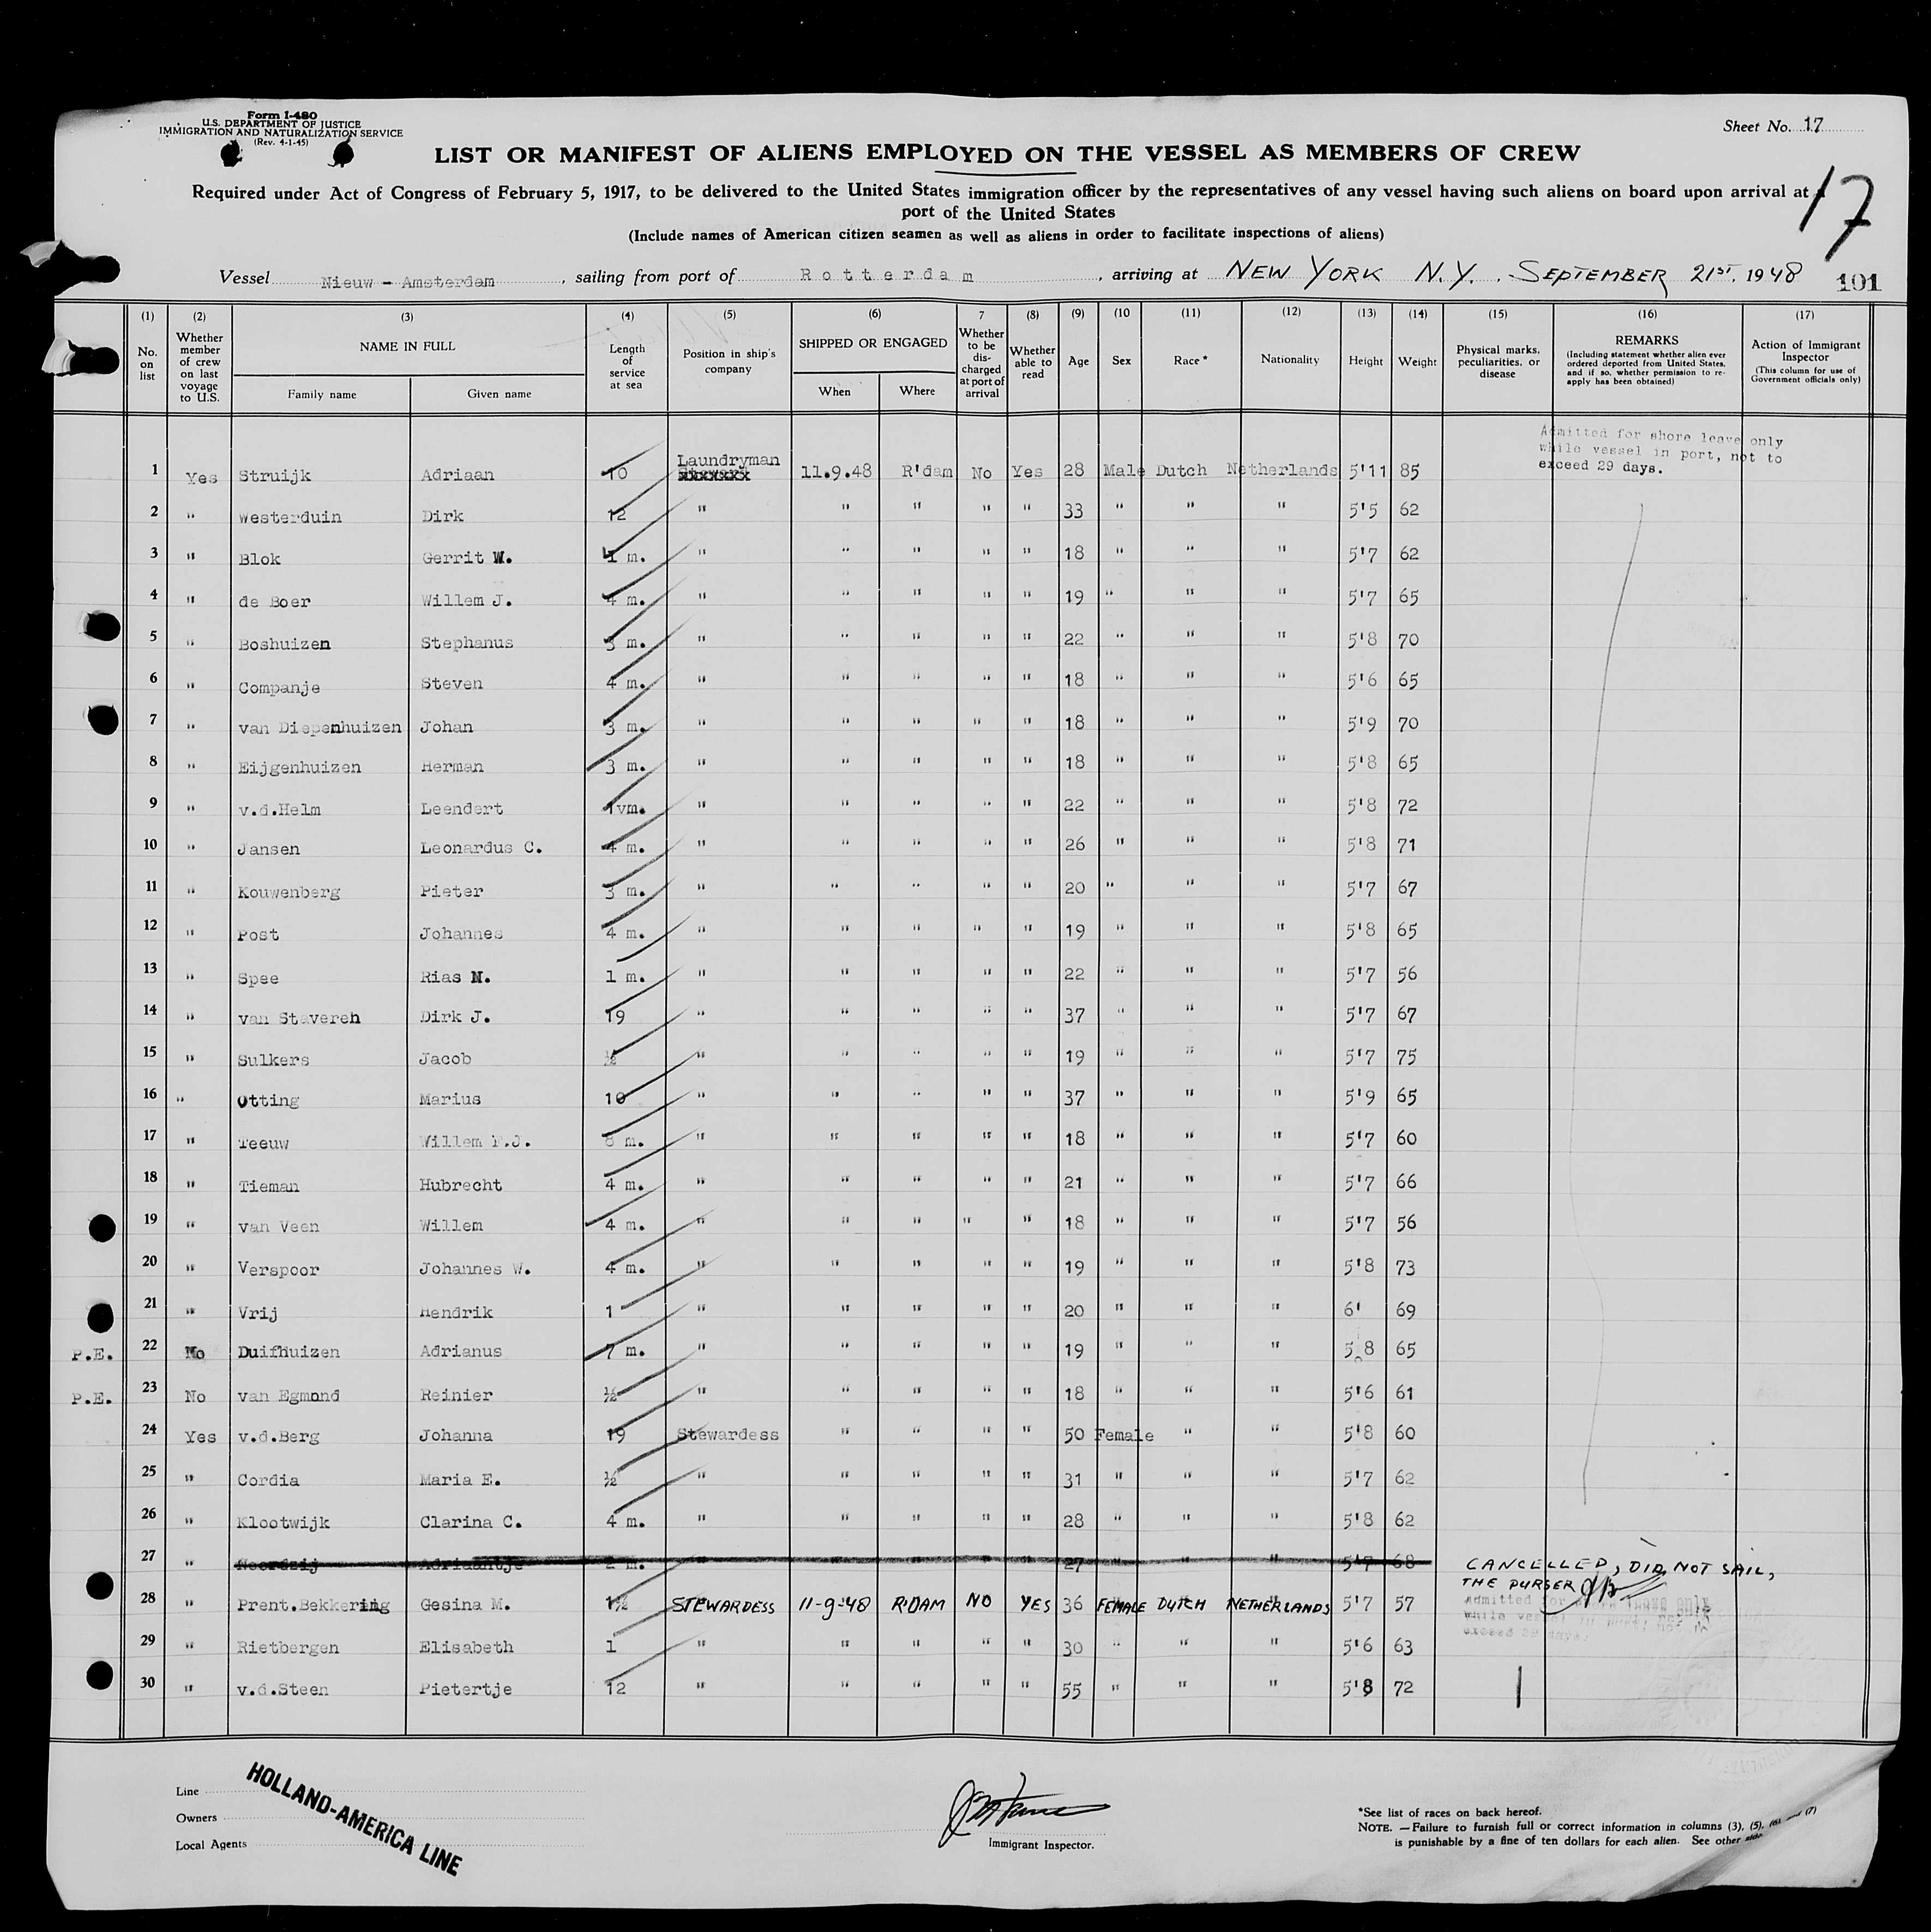 Form I-480
U.S. DEPARTMENT OF JUSTICE
IMMIGRATION AND NATURALIZATION SERVICE
(Rev. 4-1-45)
Sheet No. 17
LIST OR MANIFEST OF ALIENS EMPLOYED ON THE VESSEL AS MEMBERS OF CREW
Required under Act of Congress of February 5, 1917, to be delivered to the United States immigration officer by the representatives of any vessel having such aliens on board upon arrival at a
port of the United States
17
(Include names of American citizen seamen as well as aliens in order to facilitate inspections of aliens)
Vessel Nieuw - Amsterdam, sailing from port of Rotterdam, arriving at NEW YORK N.Y., SEPTEMBER 21ST, 1948 101
(1) No. on list
(2) Whether member of crew on last voyage to U.S.
(3) NAME IN FULL Family name Given name
(4) Length of service at sea
(5) Position in ship's company
(6) SHIPPED OR ENGAGED When Where
7 Whether to be discharged at port of arrival
(8) Whether able to read
(9) Age
(10 Sex
(11) Race *
(12) Nationality
(13) Height
(14) Weight
(15) Physical marks, peculiarities, or disease
(16) REMARKS (Including statement whether alien ever ordered deported from United States, and if so, whether permission to reapply has been obtained)
(17) Action of Immigrant Inspector (This column for use of Government officials only)
Admitted for shore leave only
while vessel in port, not to
exceed 29 days.
1 Yes Struijk Adriaan 10 Laundryman 11.9.48 R'dam No Yes 28 Male Dutch Netherlands 5'11 85
2 " Westerduin Dirk 12 " " " " " 33 " " " 5'5 62
3 " Blok Gerrit W. 1 m. " " " " " 18 " " " 5'7 62
4 " de Boer Willem J. 4 m. " " " " " 19 " " " 5'7 65
5 " Boshuizen Stephanus 3 m. " " " " " 22 " " " 5'8 70
6 " Companje Steven 4 m. " " " " " 18 " " " 5'6 65
7 " van Diepenhuizen Johan 3 m. " " " " " 18 " " " 5'9 70
8 " Eijgenhuizen Herman 3 m. " " " " " 18 " " " 5'8 65
9 " v.d.Helm Leendert 1vm. " " " " " 22 " " " 5'8 72
10 " Jansen Leonardus C. 4 m. " " " " " 26 " " " 5'8 71
11 " Kouwenberg Pieter 3 m. " " " " " 20 " " " 5'7 67
12 " Post Johannes 4 m. " " " " " 19 " " " 5'8 65
13 " Spee Rias M. 1 m. " " " " " 22 " " " 5'7 56
14 " van Stavereh Dirk J. 19 " " " " " 37 " " " 5'7 67
15 " Sulkers Jacob ½ " " " " " 19 " " " 5'7 75
16 " Otting Marius 10 " " " " " 37 " " " 5'9 65
17 " Teeuw Willem F.J. 8 m. " " " " " 18 " " " 5'7 60
18 " Tieman Hubrecht 4 m. " " " " " 21 " " " 5'7 66
19 " van Veen Willem 4 m. " " " " " 18 " " " 5'7 56
20 " Verspoor Johannes W. 4 m. " " " " " 19 " " " 5'8 73
21 " Vrij Hendrik 1 " " " " " 20 " " " 6' 69
P.E. 22 No Duifhuizen Adrianus 7 m. " " " " " 19 " " " 5 8 65
P.E. 23 No van Egmond Reinier ½ " " " " " 18 " " " 5'6 61
24 Yes v.d.Berg Johanna 19 Stewardess " " " " 50 Female " " 5'8 60
25 " Cordia Maria E. ½ " " " " " 31 " " " 5'7 62
26 " Klootwijk Clarina C. 4 m. " " " " " 28 " " " 5'8 62
27 " Noordzij Adriaantje 2 m. " " " " " 27 " " " 5'7 68 CANCELLED, DID NOT SAIL,
THE PURSER
28 " Prent.Bekkering Gesina M. 1½ STEWARDESS 11-9-48 R'DAM NO YES 36 FEMALE DUTCH NETHERLANDS 5'7 57
Admitted for shore leave only
while vessel in port, not to
exceed 29 days.
29 " Rietbergen Elisabeth 1 " " " " " 30 " " " 5'6 63
30 " v.d.Steen Pietertje 12 " " " " " 55 " " " 5'8 72
Line
Owners
Local Agents
HOLLAND-AMERICA LINE
Immigrant Inspector.
*See list of races on back hereof.
NOTE. — Failure to furnish full or correct information in columns (3), (5), (6), and (7)
is punishable by a fine of ten dollars for each alien. See other side